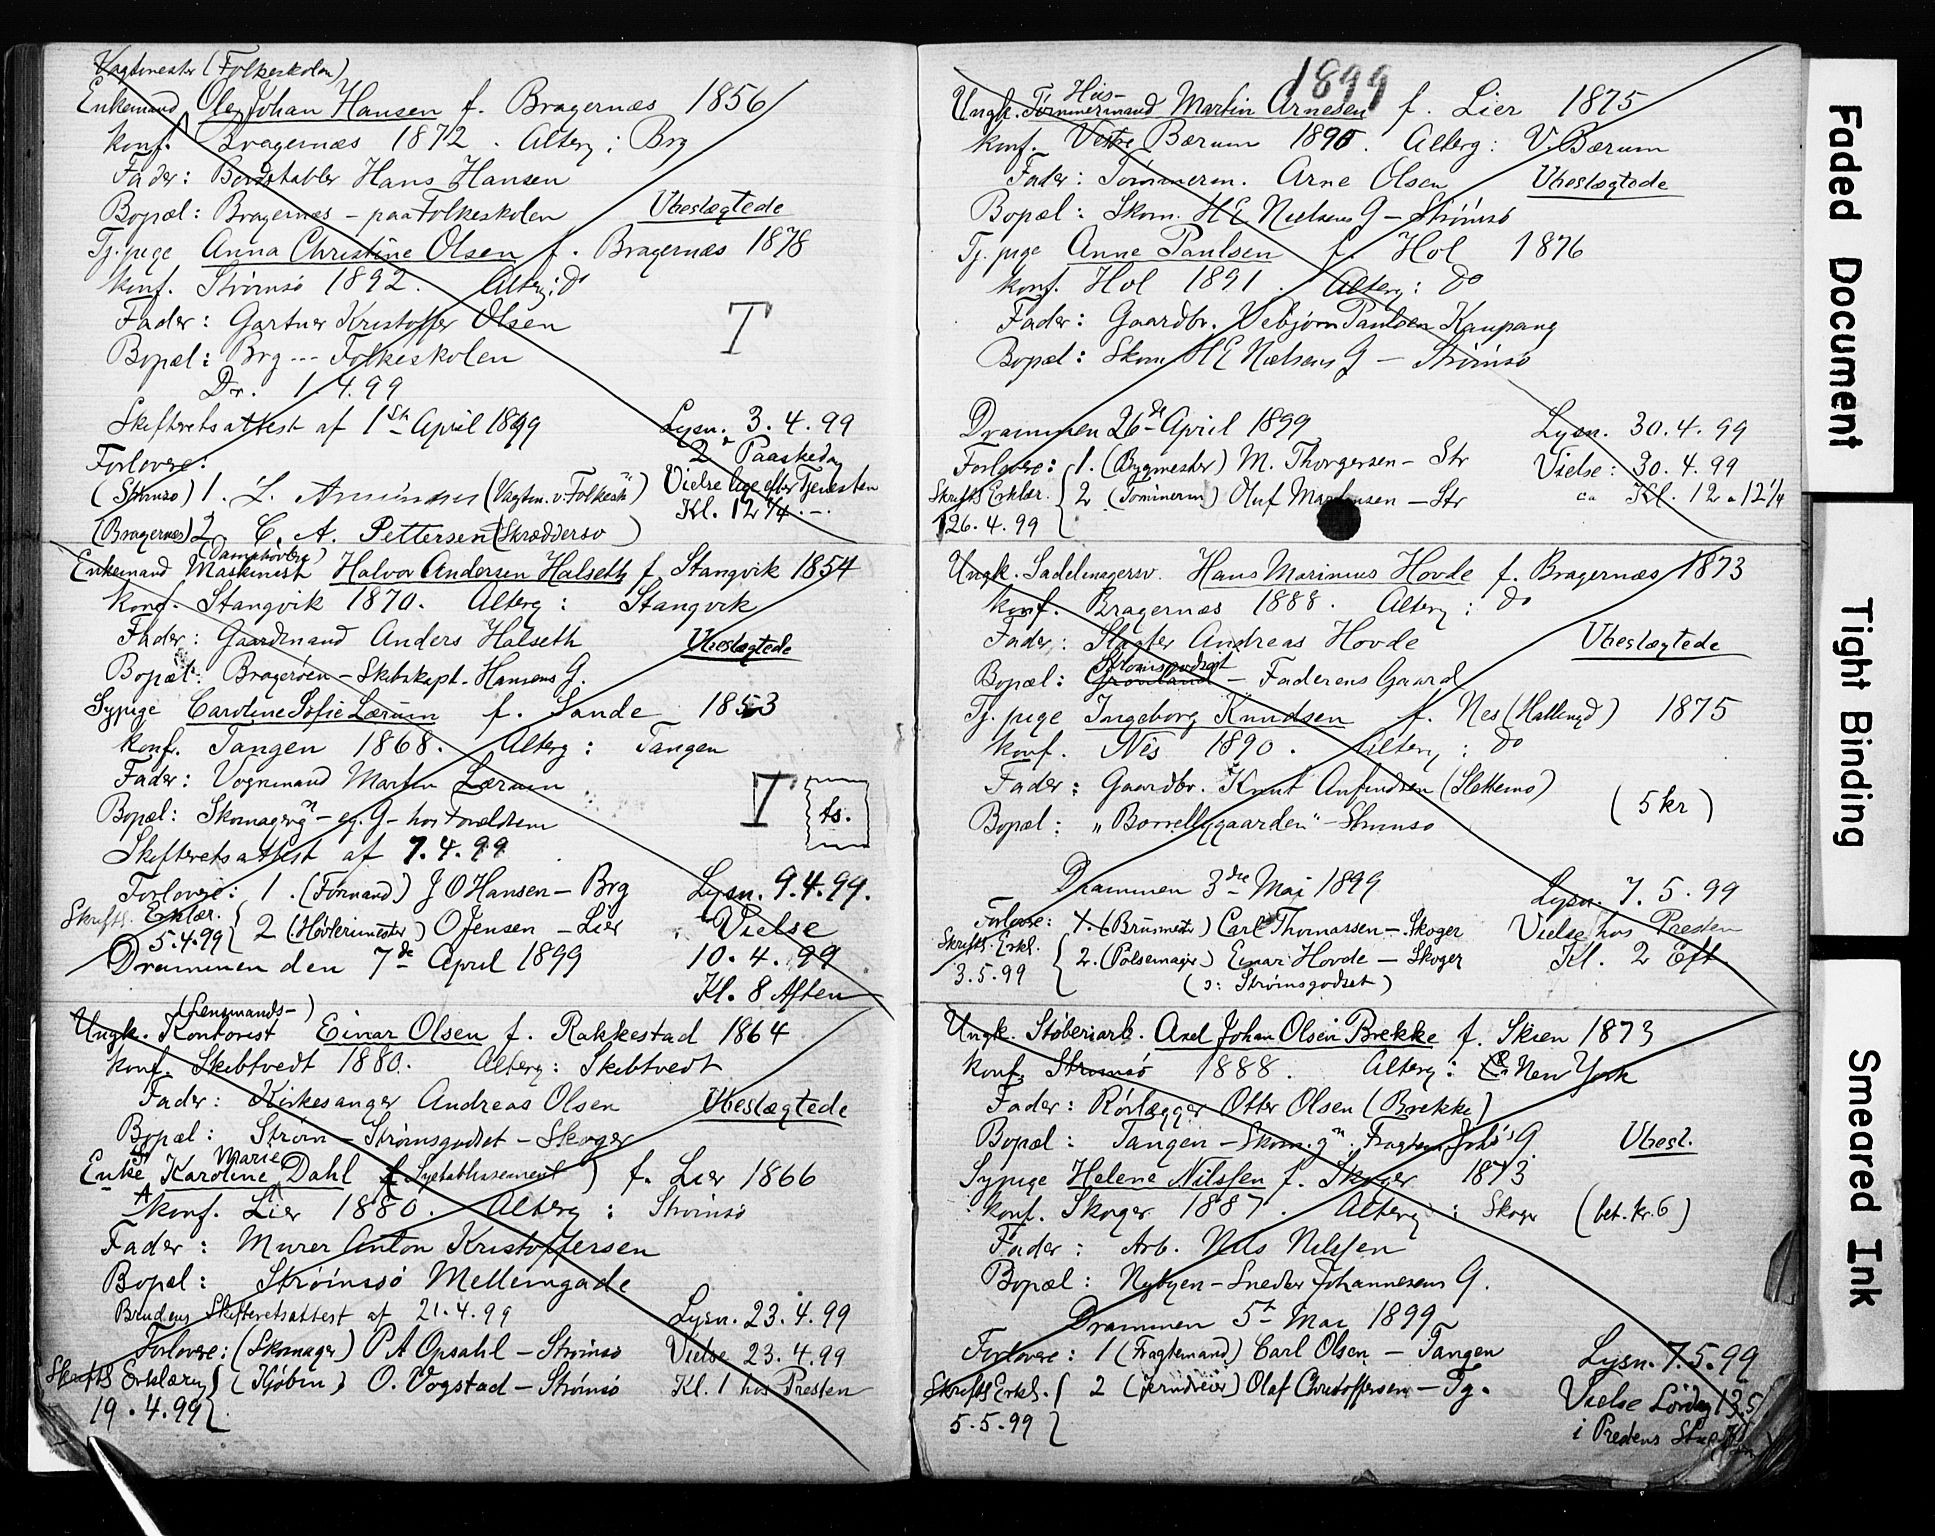 Vagtmester (Folkeskolen)
Enkemand Ole Johan Hansen f. Bragernæs 1856
konf. Bragernæs 1872. Alterg: Brg
Fader: Bordstabler Hans Hansen
Bopæl: Bragernæs - paa Folkeskolen Ubeslægtede
Tj. pige Anna Christine Olsen f. Bragernæs 1878
konf. Strømsø 1892. Alterg: do
Fader: Gartner Kristoffer Olsen T
Bopæl: Brg --- Folkeskolen
Dr. 1.4.99
Skifteretsattest af 1ste April 1899 Lysn. 3.4.99
2 Paaskedag
Forlovere:
(Strømsø) 1. L. (Vagtm. v. Folkesk) Vielse lige efter Tjenesten
Kl. 12 1/4.-.
(Bragernæs) 2 C. A. Pettersen (Skræddersv)
(Damphøvleri)
Enkemand Maskinist Halvor Andersen Halseth f. Stangvik 1854
konf. Stangvik 1870. Alterg: Stangvik
Fader: Gaardmand Anders Halseth Ubeslægtede
Bopæl: Bragerøen - Skibskapt. Hansens G.
Sypige Caroline Sofie Lærum f. Sande 1853
konf. Tangen 1868. Alterg: Tangen
Fader: Vognmand Martin Lærum
T ts.
Bopæl: Skomagerg - eg. G - hos Forældrene
Skifteretsattest af 7.4.99
Forlovere: 1. (Formand) J O Hansen - Brg Lysn. 9.4.99.
Skriftl. Erklær.
5.4.99 { 2 (Høvlerimester) O Jensen - Lier Vielse
Drammen den 7de April 1899 10.4.99
Kl. 8 Aften
(Lensmands-)
Ungk. Kontorist Einar Olsen f. Rakkestad 1864
konf. Skibtvedt 1880. Alterg: Skibtvedt
Fader: Kirkesanger Andreas Olsen Ubeslægtede
Bopæl: Strøm - Strømsgodset - Skoger
Marie
Enke Karoline Dahl (Syetablissement) f. Lier 1866
konf. Lier 1880. Alterg: Strømsø
Fader: Murer Anton Kristoffersen
Bopæl: Strømsø Mellemgade
Brudens Skifteretsattest af 21.4.99 Lysn. 23.4.99
Forlovere: (Skomager) P A Opsahl - Strømsø Vielse 23.4.99
Skriftl. Erklæring { (Kjøbm) O. Vogstad - Strømsø Kl. 1 hos Presten
19.4.99
1899
Hus-
Ungk. Tømmermand Martin Arnesen f. Lier 1875
konf. Vestre Bærum 1890. Alterg: V. Bærum
Fader: Tømmerm. Arne Olsen Ubeslægtede
Bopæl: Skom. H E Nielsens G - Strømsø
Tj. pige Anne Paulsen f. Hol 1876
konf. Hol 1891. Alterg: do
Fader: Gaardbr. Vebjørn Paulsen Kaupang
Bopæl: Skom H E Nielsens G - Strømsø
Drammen 26de April 1899 Lysn. 30.4.99
Forlovere: 1. (Bygmester) M. Thorgersen - Str Vielse: 30.4.99
Skriftl. Erklær. { 2 (Tømmerm) Oluf Martinsen - Str ca Kl. 12 a 12 1/4
26.4.99
Ungk. Sadelmagersv. Hans Marinius Hovde f. Bragernæs 1873
konf. Bragernæs 1888. Alterg: do
Fader: Slagter Andreas Hovde Ubeslægtede
Strømsgodset
Bopæl: Grønland - Faderens Gaard
Tj. pige Ingeborg Knudsen f. Nes (Hallingd) 1875
konf. Nes 1890. Alterg: do
Fader: Gaardbr. Knut Anfindsen (Slettemo)
(5 kr)
Bopæl: "Borrellygaarden" - Strømsø
Drammen 3die Mai 1899 Lysn. 7.5.99
Forlovere: 1. (Brusmester) Carl Thomassen - Skoger Vielse hos Presten
Skriftl. Erkl. { 2. (Pølsemager) Einar Hovde - Skoger Kl. 2 Eft.
3.5.99 (ɔ: Strømsgodset)
Ungk. Støberiarb. Axel Johan Olsen Brekke f. Skien 1873
konf. Strømsø 1888. Alterg: New York
Fader: Rørlægger Otter Olsen (Brekke)
Bopæl: Tangen - Skom. g. Fragtem Johs G. Ubesl.
Sypige Helene Nilssen f. Skoger 1873
konf. Skoger 1887. Alterg: Skoger (bet. kr. 6)
Fader: Arb. Nils Nilssen
Bopæl: Nybyen - Snedker Johannesens G.
Drammen 5te Mai 1899
Forlovere: 1 (Fragtemand) Carl Olsen - Tangen Lysn. 7.5.99
Skriftl. Erkl. { 2 (Jerndreier) Olaf Christoffersen - Tg. Vielse Lørdag 13.5
5.5.99 i Prestens
Faded Document
Tight Binding
Smeared Ink